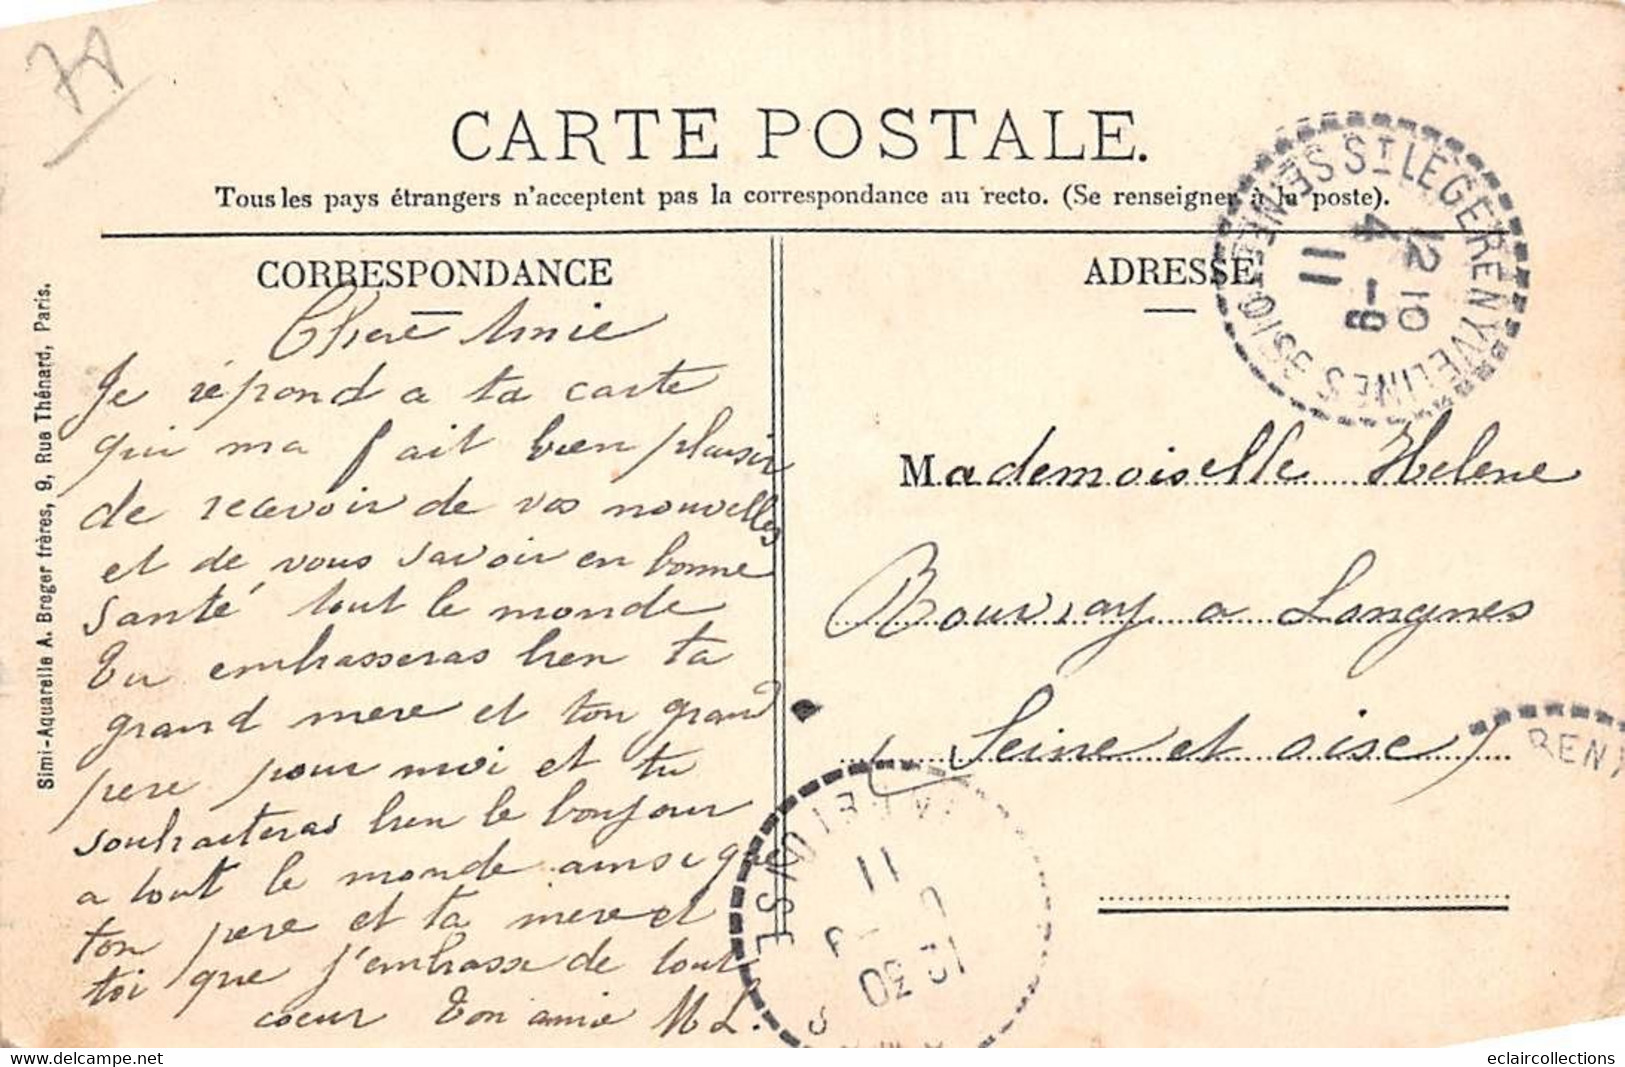 78
CARTE POSTALE.
Tous les pays étrangers n'acceptent pas la correspondance au recto. (Se renseigner à la poste).
CORRESPONDANCE
Chere Amie
Je répond a ta carte
qui ma fait bien plaisir
de recevoir de vos nouvelles
et de vous savoir en bonne
santé tout le monde
Tu embrasseras bien ta
grand mere et ton grand
pere pour moi et tu
souhaiteras bien le bonjour
a tout le monde ainsi que
ton pere et ta mere et
toi que j'embrasse de tout
coeur Ton amie M L.
Simi-Aquarelle A. Breger frères, 9, Rue Thénard, Paris.
ADRESSE
Mademoiselle Helene
Rouvray a Longnes
(Seine et oise)
ST LEGER EN YVELINES SEINE-ET-OISE
12 10
4 -9
11
REN
11
30
eclaircollections